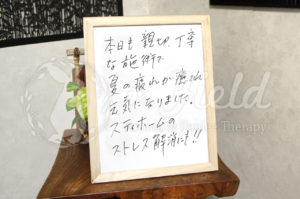 本日も親切丁寧
な施術で
夏の疲れが癒され
元気になりました。
スティホームの
ストレス解消にも!!
Therapy